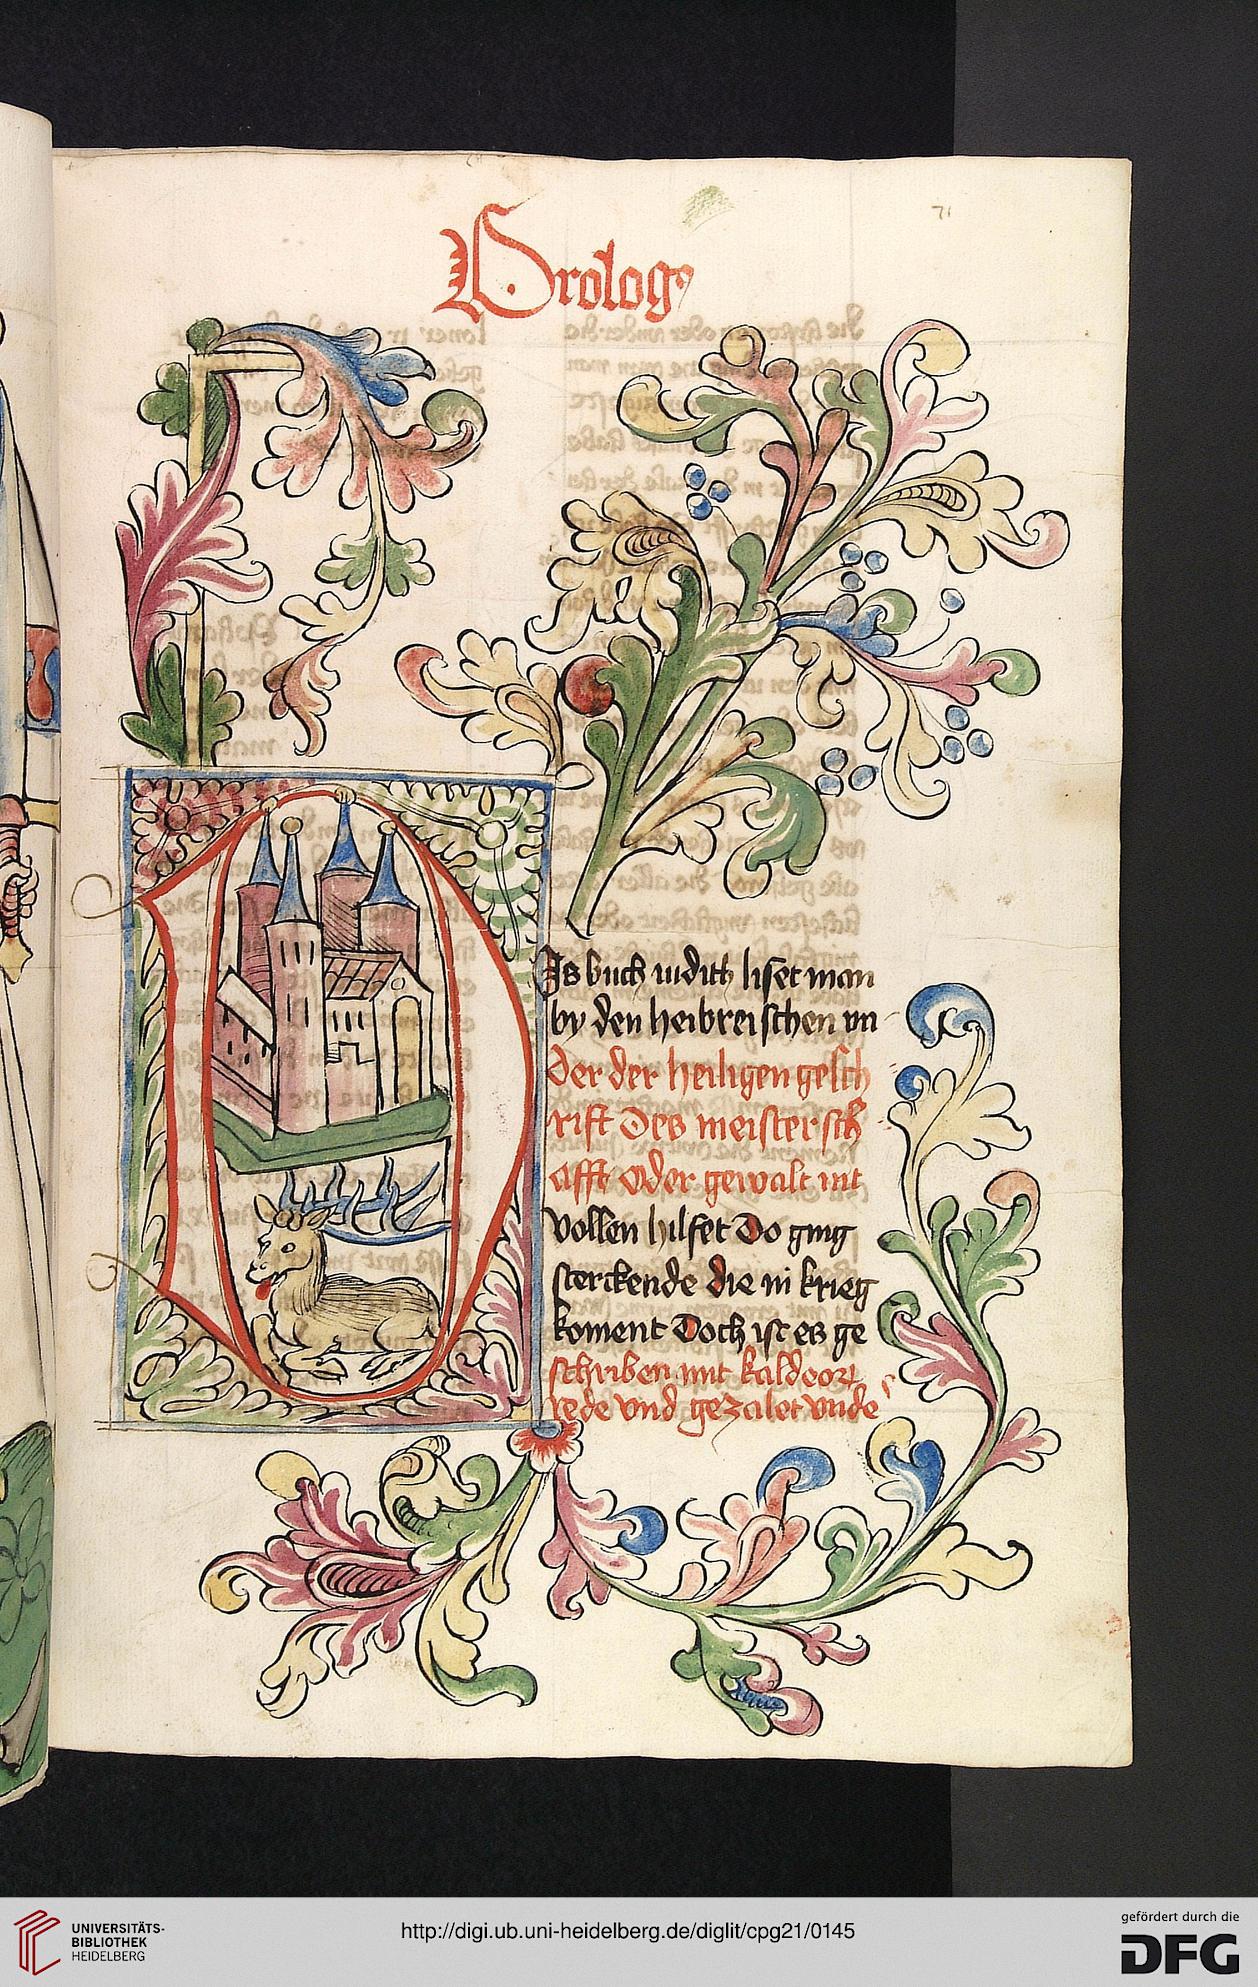 Prologꝰ
71
DJs buch iudith liset man
by den heibreischen vn
der der heiligen gesch
rift Des meistersch
afft oder gewalt mt
vollen hilfet Do ging
sterckende die in krieg
koment Doch ist es ge
schriben mit kaldeorz
rede vnd gezalet vnde
UNIVERSITÄTS-
BIBLIOTHEK
HEIDELBERG
http://digi.ub.uni-heidelberg.de/diglit/cpg21/0145
gefördert durch die
DFG